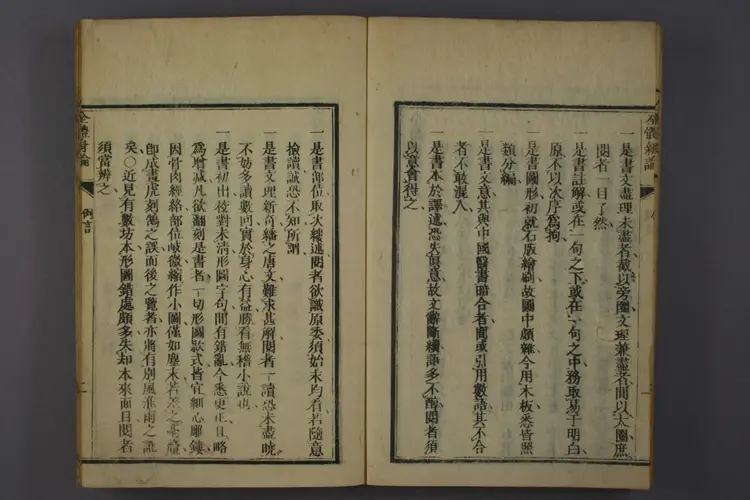 一是書文盡理未盡者截以旁圈文理兼盡者間以大圈庶
閱者一目了然
一是書註解或在一句之下或在一句之中務取易于明白
原不以次序爲拘
一是書圖形初就石版繪刷故圖中頗雜今用木板悉皆照
類分編
一是書文意其與中國醫書暗合者間或引用數語其不合
者不敢混入
一是書本於譯述恐失眞意故文辭斷續語多不醇閱者須
以意會得之
全體新論
一是書部位取次縷述閱者欲識原委須始末均看若隨意
撿讀誠恐不知所謂
一是書文理新奇繙之唐文難求甚解閱者一讀恐未盡曉
不妨多讀數回實於身心有益勝看無稽小說也
一是書初出校對未清形圖字句間有錯亂今悉更正且略
爲增減凡欲翻刻是書者一切形圖款式皆宜細心雕鏤
因骨肉經絡部位歧微縮作小圖僅如塵末若差之毫釐
卽成畫虎刻鵠之誤而後之覽者亦將有別風淮雨之訛
矣〇近見有數坊本形圖錯處頗多失却本來面目閱者
須當辨之
全體新論
例言
二